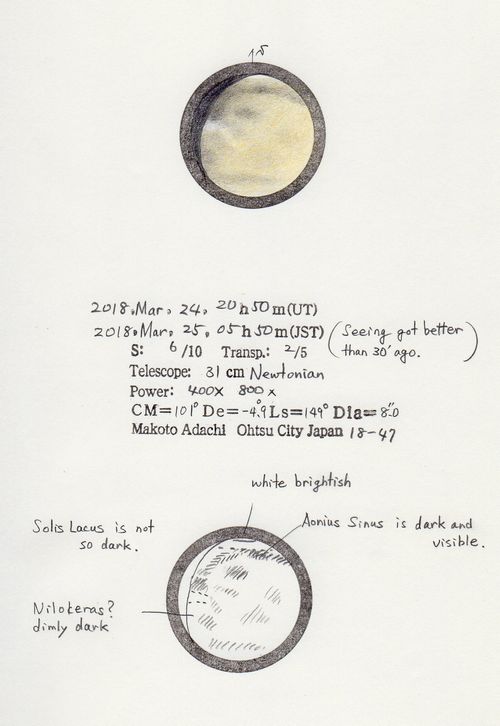 S
2018. Mar. 24, 20 h 50 m (UT)
2018. Mar. 25, 05 h 50 m (JST) (Seeing got better than 30' ago.)
S: 6/10 Transp.: 2/5
Telescope: 31 cm Newtonian
Power: 400x 800x
CM=101° De=-4.°9 Ls=149° Dia=8."0
Makoto Adachi Ohtsu City Japan 18-47
white brightish
Solis Lacus is not
so dark.
Aonius Sinus is dark and
visible.
Niloteras?
dimly dark